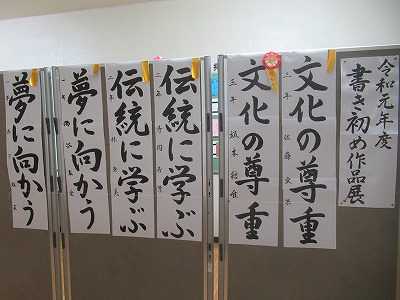 令和元年度
書き初め作品展
文化の尊重
三年
文化の尊重
三年
伝統に学ぶ
二年
伝統に学ぶ
二年
夢に向かう
一年
夢に向かう
一年